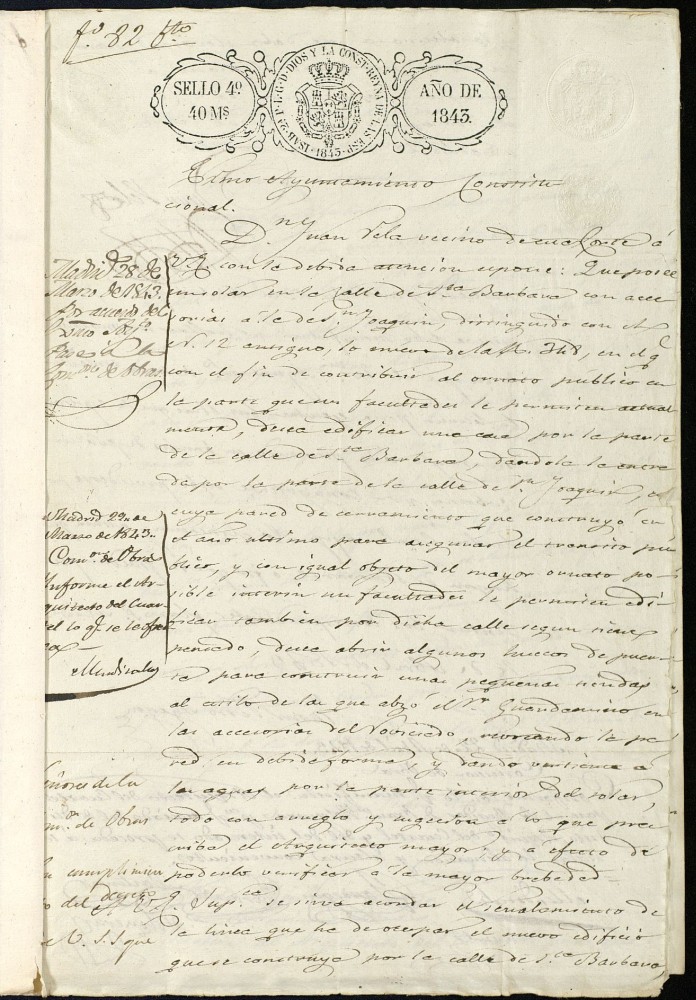 fº 82 fto
SELLO 4º
40 Ms
ISAB. 2ª P. L. G. D. DIOS Y LA CONST. REYNA DE LAS ESP.
1843
AÑO DE
1843.
Exmo Ayuntamiento Constitu
cional.
Dn Juan Vela vecino de esta Corte á
V. E. con la debida atencion espone: Que posee
un solar en la calle de Sta Barbara con acce
sorias á la de Sn Joaquin, distinguido con el
N. 12 antiguo, lo nuevo de la 348, en el q
con el fin de contribuir al ornato publico en
la parte que sus facultades le permiten actual
mente, desea edificar una casa por la parte
de la calle de Sta Barbara, dandola la entra
da por la parte de la calle de Sn Joaquin,
cuya pared de cerramiento que construyó en
el año ultimo para asegurar el transito pu
blico, y con igual objeto del mayor ornato po
sible interin sus facultades le permiten edi
ficar tambien por dicha calle segun tiene
pensado, desea abrir algunos huecos de puer
ta para construir unas pequeñas tiendas
al estilo de las que abzó el Sr Guardamino en
las accesorias del Noviciado, recorriendo la pa
red, en debida forma, y dando vertiente á
las aguas por la parte interior del solar,
todo con arreglo y sugecion á lo que pres
criba el Arquitecto mayor: y a efecto de
poderlo verificar á la mayor brebedad
V. E. Supca se sirva acordar el señalamiento de
la linea que ha de ocupar el nuevo edificio
que se construya por la calle de Sta Barbara,
Madrid 28 de
Marzo de 1843.
Por acuerdo del
Exmo Ayto
Pase á la
Comon de Obras
Madrid 29 de
Marzo de 1843.
Comon de Obras
Informe el Ar
quitecto del Cuar
tel lo q. se le ofrez
ca
Mendizabal
Señores de la
Comon de Obras
En cumplimien
to del decreto
de V. S. S que